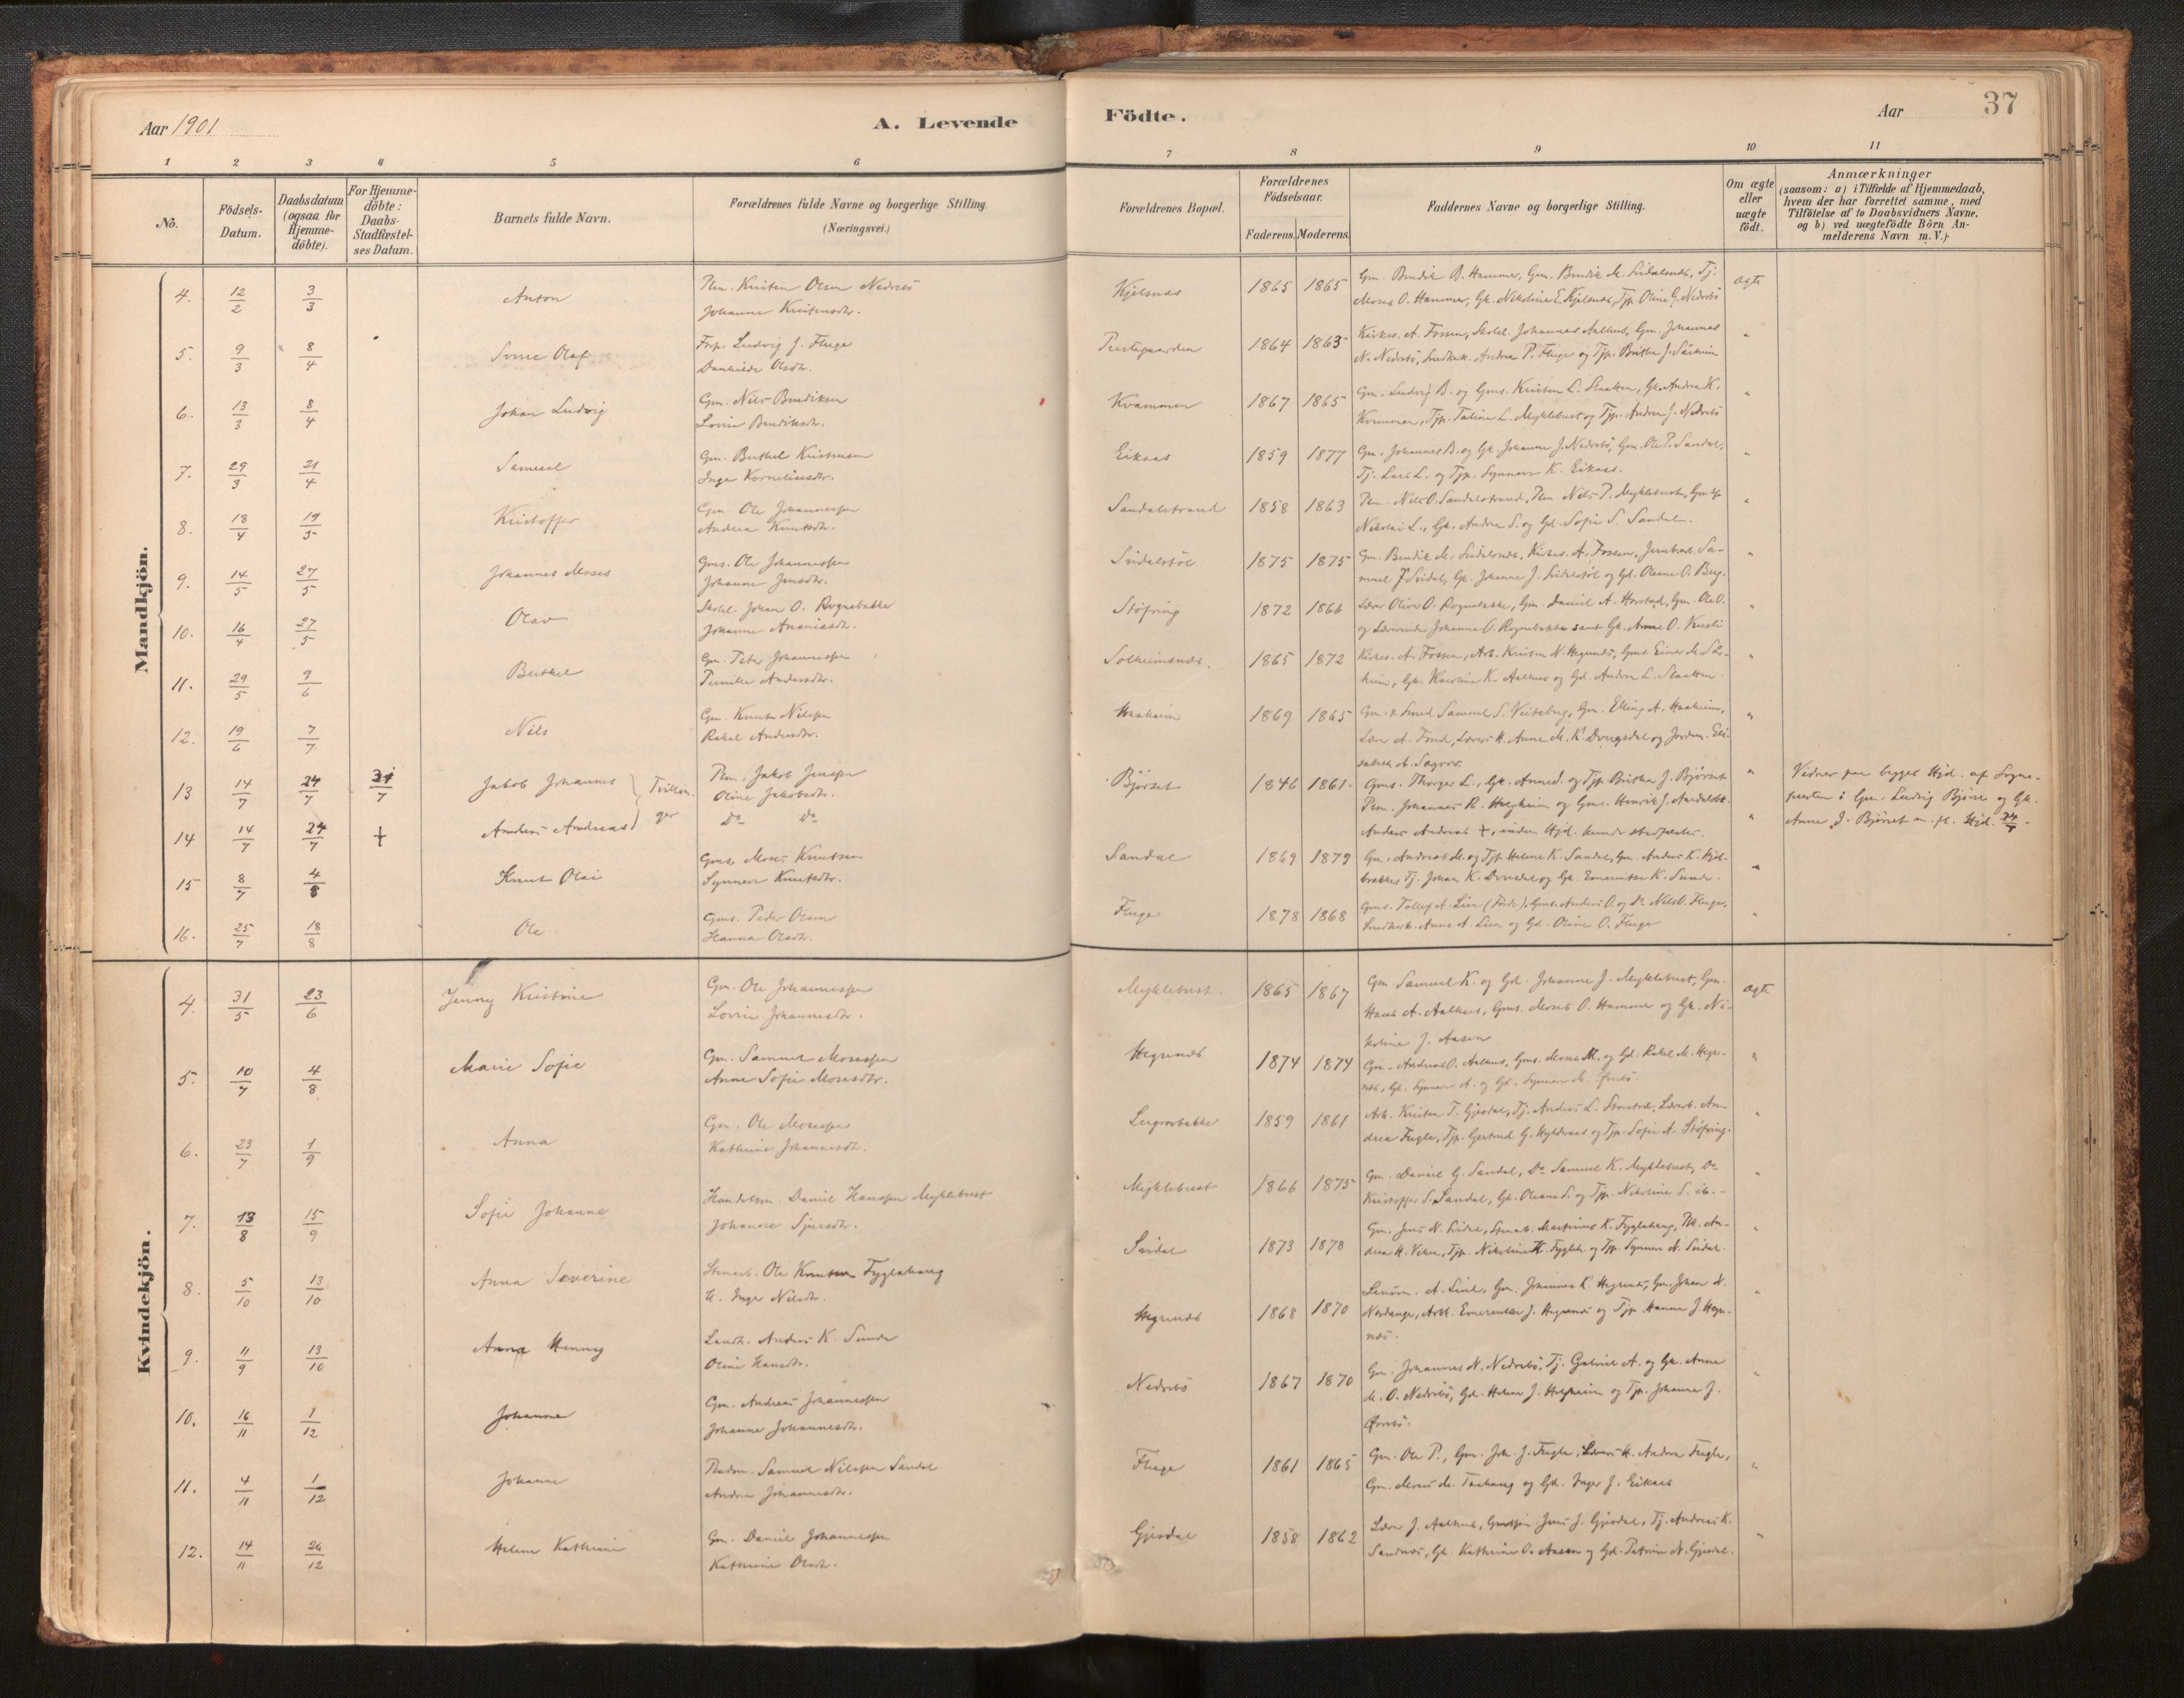 Aar 1901
A. Levende
Födte.
Aar
37
1 2 3 4 5 6 7 8 9 10 11
No.
Födsels-Datum.
Daabsdatum (ogsaa for Hjemme-döbte).
For Hjemme-döbte: Daabs-Stadfæstel-ses Datum.
Barnets fulde Navn.
Forældrenes fulde Navne og borgerlige Stilling. (Næringsvei.)
Forældrenes Bopæl.
Forældrenes Födselsaar.
Faderens. Moderens.
Faddernes Navne og borgerlige Stilling.
Om ægte eller uægte födt.
Anmærkninger
(saasom: a) i Tilfælde af Hjemmedaab, hvem der har forrettet samme, med Tilföielse af to Daabsvidners Navne, og b) ved uægtefödte Börn An-melderens Navn m. V.)
Mandkjön.
4. 12/2 3/3 Anton
Knisten Olsen Nedrebö
Johanne
Kjelsnæs 1865 1865 Gm. Bendik B. Hammer, Gm. Bendik M. Svidalsnæs, Tj.
Moses O. Hammer, Gk. Nikoline E. Kjelsnæs, Tjp. Oline G. Nedrebö
ægte
5. 9/3 8/4 Sverre Olaf
Ludvig J. Fluge
Olsdtr.
Prestegaarden 1864 1863 Kirkes. A. Fossen, Skolel. Johannes Aalhus, Gm. Johannes
N. Nedrebö, Andrea P. Fluge og Tjp. Brithe J.
"
6. 13/3 8/4 Johan Ludvig
Gm. Nils Bendiksen
Lovise Bendiksdtr.
Kvammen 1867 1865 Gm. Ludvig B. og Gms. Kristen L. Slaatten, Gk. Andrea K.
Kvammen, Tjp. Taline L. Myklebust og Tjp. Andrea J. Nedrebö
"
7. 29/3 21/4 Samuel
Gm. Berthel Kristensen
Inga Korneliusdtr.
Eikaas 1859 1877 Gm. Johannes B. og Gk. Johanne J. Nedrebö, Gm. Ole P. Sandal,
Tj. Lars L. og Tjp. Synneve K. Eikaas.
"
8. 18/4 19/5 Kristoffer
Gm. Ole Johannessen
Andrea Knutsdtr.
Sandalstrand 1858 1863 Plm. Nils O. Sandalstrand, Plm. Nils P. Myklebust,
Nikolai L., Gk. Andrea S. og Gd. Sofie S. Sandal.
"
9. 14/5 27/5 Johannes Moses
Gms. Ole Johannessen
Johanne Jensdtr.
Svidalstöl 1875 1875 Gm. Bendik M. Svidalsnæs, Kirkes. A. Fossen, Sa-
muel J. Svidal, Gk. Johanne J. Svidalstöl og Gd. Oleane O. Berg.
"
10. 16/4 27/5 Olav
Skolel. Johan O. Rognebakke
Johanne Ananiasdtr.
Stöfring 1872 1866 Lærer Oliver O. Rognebakke, Gm. Daniel A. Havstad, Gm. Ole O.
og Lærerinde Johanne O. Rognebakke samt Gk. Anne O.
"
11. 29/5 9/6 Berthel
Gm. Peter Johannessen
Pernille Andersdtr.
Solheimsnæs. 1865 1872 Kirkes. A. Fossen, Arb. Kristen N. Hegrenæs, Gms. Einar M. Sol-
heim, Gk. Karoline K. Aalhus og Gd. Andrea L. Slaatten.
"
12. 19/6 7/7 Nils
Gm. Knut Nilssen
Rakel Andersdtr.
Haaheim 1869 1865 Gm. & Smed Samuel S. Veiteberg, Gm. Elling A. Haaheim,
Lærer A. Fond, Anne M. K. Dvergsdal og Jordm. Eli-
sabeth A. Sagrov.
"
13 14/7 24/7 31/7 Jakob Johannes } Tvillin-
Plm. Jakob Jenssen
Oline Jakobsdtr.
Björset 1846 1861. Gms. Thorger L., Gk. Anne J. og Tjp. Brithe J. Björset
Plm. Johannes R. Helgheim og Gms. Henrik J. Aardalsbk.
"
Vidner paa begges Hjd. af Sogne-
presten: Gm. Ludvig Björse og Gk.
Anne J. Björset m. fl. Hjd. 24/7.
14 14/7 24/7 † Anders Andreas } ger
Do Do
Anders Andreas †, inden Hjd. kunde stadfæstes.
"
15 8/7 4/8 Knut Olai
Gms. Moses Knutsen
Synneve Knutsdtr.
Sandal 1869 1879 Gm. Andreas M. og Tjp. Helene K. Sandal, Gm. Anders K. Kjöl-
Tj. Johan K. Dvergsdal og Gk. Emerentse K. Sunde.
"
16. 25/7 18/8 Ole
Gms. Peder Olsen
Hanna Olsdtr.
Fluge 1878 1868 Gms. Tollef A. Lien (Förde), Gms. Anders O. og Do Nils O. Fluge,
Anne A. Lien og Gd. Oline O. Fluge
"
Kvindekjön.
4. 31/5 23/6 Jenny Kristine
Gm. Ole Johannessen
Lovise Johannesdtr.
Myklebust 1865 1867 Gm. Samuel K. og Gd. Johanne J. Myklebust, Gm.
Hans A. Aalhus, Gms. Moses O. Hammer og Gk. Ni-
koline J. Aasen
ægte
5. 10/7 4/8 Marie Sofie
Gm. Samuel Mosessen
Anne Sofie Mosesdtr.
Hegrenæs 1874 1874 Gm. Andreas O. Aalhus, Gms. Moses M. og Gd. Rakel M. Hegre-
næs, Gk. Synneve A. og Gd. Synneve M. Örrebö.
"
6. 23/7 1/9 Anna
Gm. Ole Mosessen
Kathrine Johannesdtr.
Leigrovbakke 1859 1861 Arb. Kristen T. Gjesdal, Tj. Anders L. An-
drea Fugle, Tjp. Gertrud G. og Tjp. Sofie A. Stöfring.
"
7. 13/8 15/9 Sofie Johanne
Handelsm. Daniel Hanssen Myklebust
Johanne Sjursdtr.
Myklebust 1866 1875 Gm. Daniel G. Sandal, Do Samuel K. Myklebust, Do
Kristoffer S. Sandal, Gk. Oleane S. og Tjp. Nikoline S. ib.
"
8. 5/10 13/10 Anna Severine
Stenarb. Ole Knutsen Fyglehaug
H. Inger Nilsdtr.
Svidal 1873 1878 Gm. Jens N. Svidal, Stenarb. Martinus K. Fyglehaug, Pk. An-
drea H. Viken, Tjp. Nikoline K. Fygleh. og Tjp. Synneve N. Svidal.
"
9. 11/9 13/10 Anna Henny
Landh. Anders K. Sunde
Oline Hansdtr.
Hegrenæs 1868 1870 A. Lind, Gm. Johannes K. Hegrenæs, Gm. Johan N.
Emerentse J. Hegrenæs og Tjp. Hanna J. Hegre-
næs.
"
10. 16/11 1/12 Johanne
Gm. Andreas Johannessen
Johanne Johannesdtr.
Nedrebö 1867 1870 Gm. Johannes N. Nedrebö, Tj. Gabriel A. og Gk. Anne
M. O. Nedrebö, Gd. Helene J. Helgheim og Tjp. Johanne J.
Örrebö.
"
11. 4/11 1/12 Johanne
Samuel Nilssen Sandal
Andrea Johannesdtr.
Fluge 1861 1865 Gm. Ole P., Gm. Joh. J. Fugle, Andrea Fugle,
Gm. og Gk. Inger J. Eikaas
"
12. 14/11 26/12 Helene Kathrine
Gm. Daniel Johannessen
Kathrine Olsdtr.
Gjesdal 1858 1862 Lærer J. Aalhus, Jens J. Gjesdal, Tj. Andreas K.
Sandnes, Gk. Kathrine O. Aasen og Gd. Petrine N. Gjesdal.
"